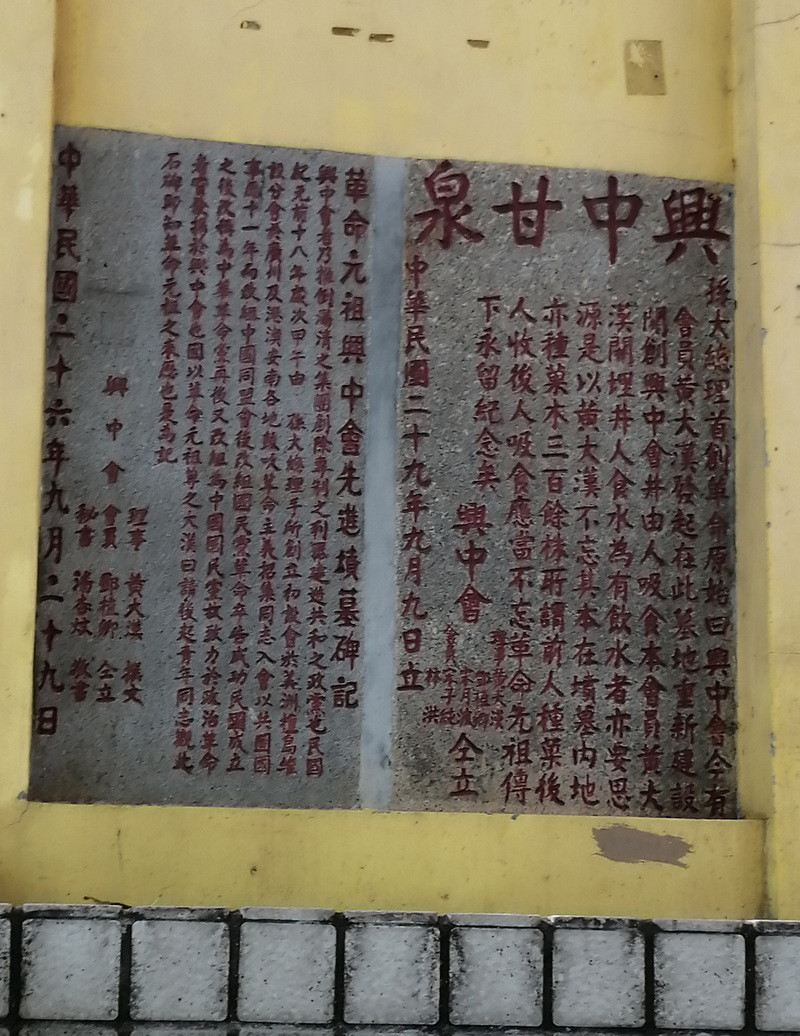 興中甘泉
孫大總理首創革命原始曰興中會今有
會員黃大漢發起在此墓地重新建設
開創興中會井由人吸食本會員黃大
漢開埋井人食水為有飲水者亦要思
源是以黃大漢不忘其本在墳墓內地
亦種菓木三百餘株所謂前人種菓後
人收後人吸食應當不忘革命先祖傳
下永留紀念矣
興中會
理事黃大漢
鄧植卿
會員宋子
林洪
仝立
中華民國二十九年九月九日立
革命元祖興中會先進墳墓碑記
興中會者乃推倒滿清之集團剷除專制之利器建造共和之政黨也民國
紀元前十八年歲次甲午由 孫大總理手所創立初設會於美洲檀島繼
設分會於廣州及港澳安南各地鼓吹革命主義招集同志入會以共圖國
事歷十一年而改組中國同盟會後改組國民黨革命卒告成功民國成立
之後改稱為中華革命黨再後又改組為中國國民黨故致力於政治革命
者當發揚於興中會也國以革命元祖尊之大漢曰請後起青年同志觀此
石碑即知革命元祖之來歷也是為記
興中會
理事 黃大漢 撰文
會員 鄧植卿 仝立
秘書 湯杏林 敬書
中華民國二十六年九月二十九日